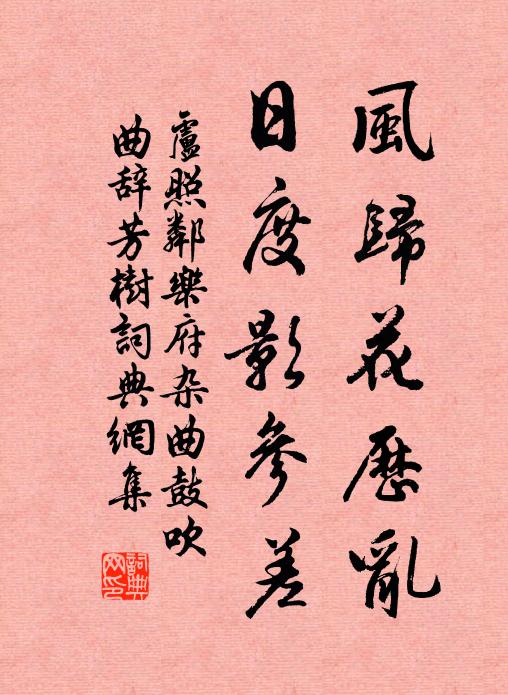 風歸花歷亂
日度影參差
盧照鄰樂府杂曲鼓吹
曲辞芳樹詞典網集
詞典网印